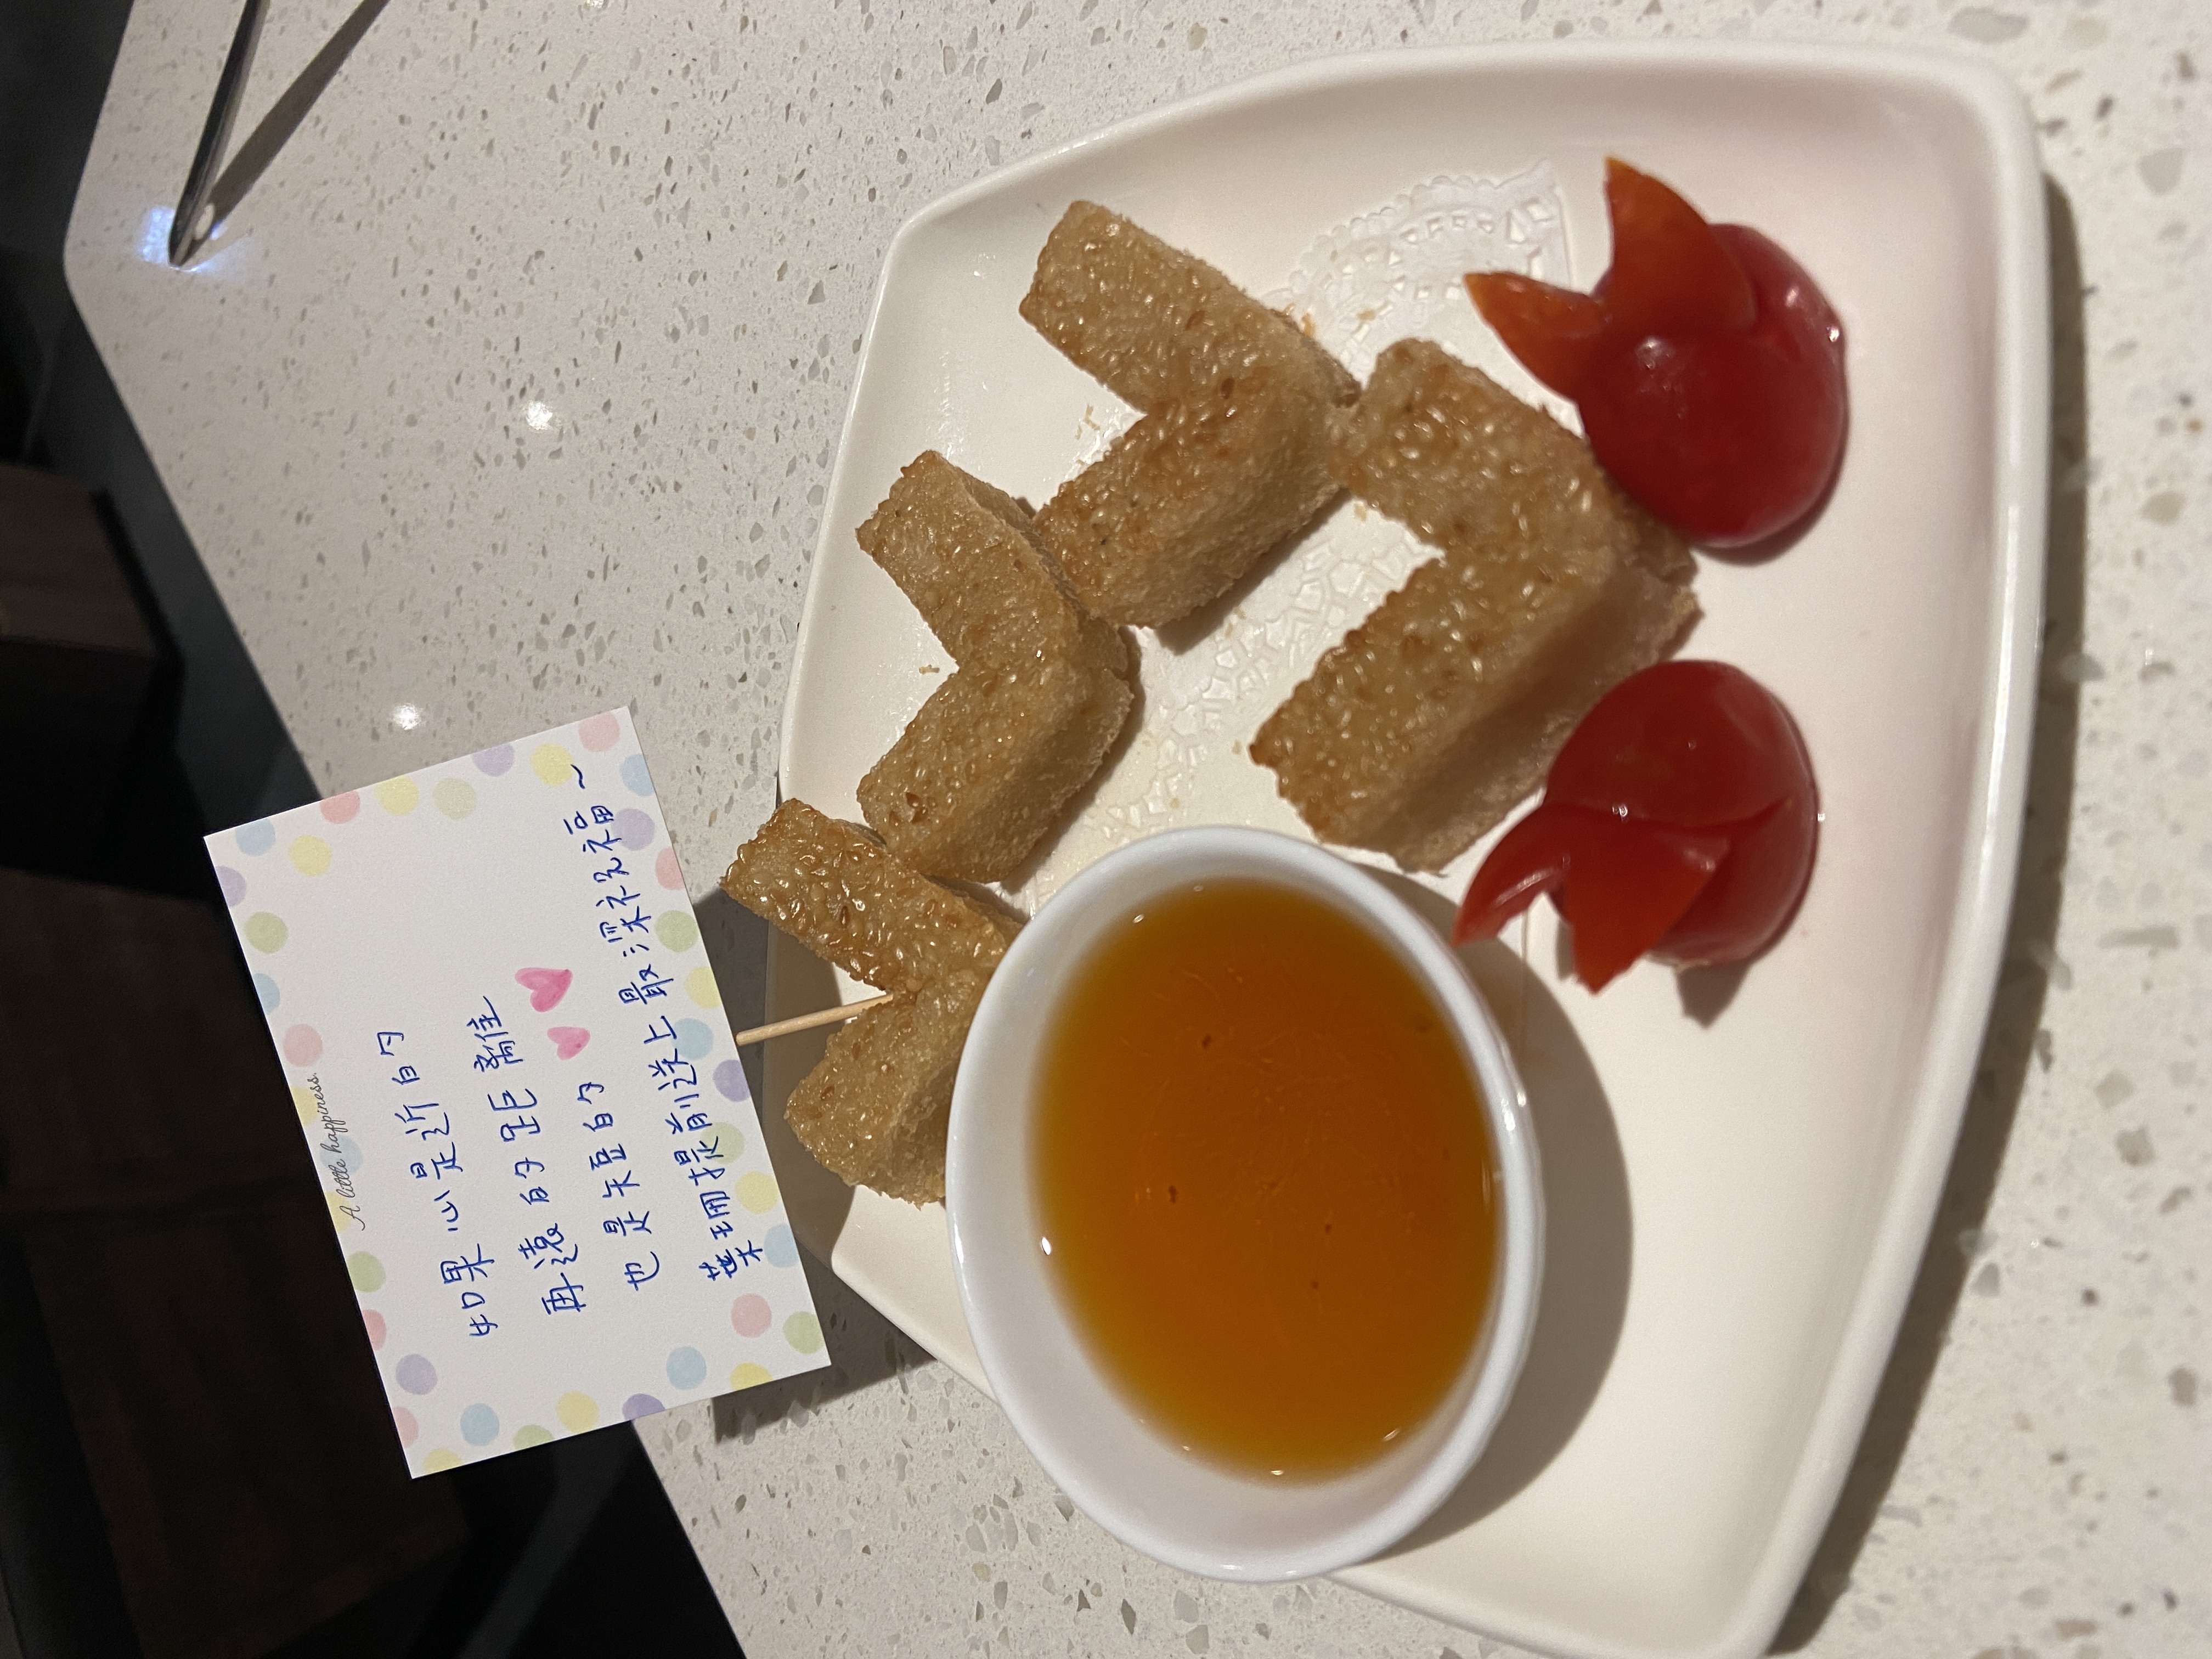 A little happiness.
如果心是近的
再遠的距離
也是短的
葉珊提前送上最深祝福~